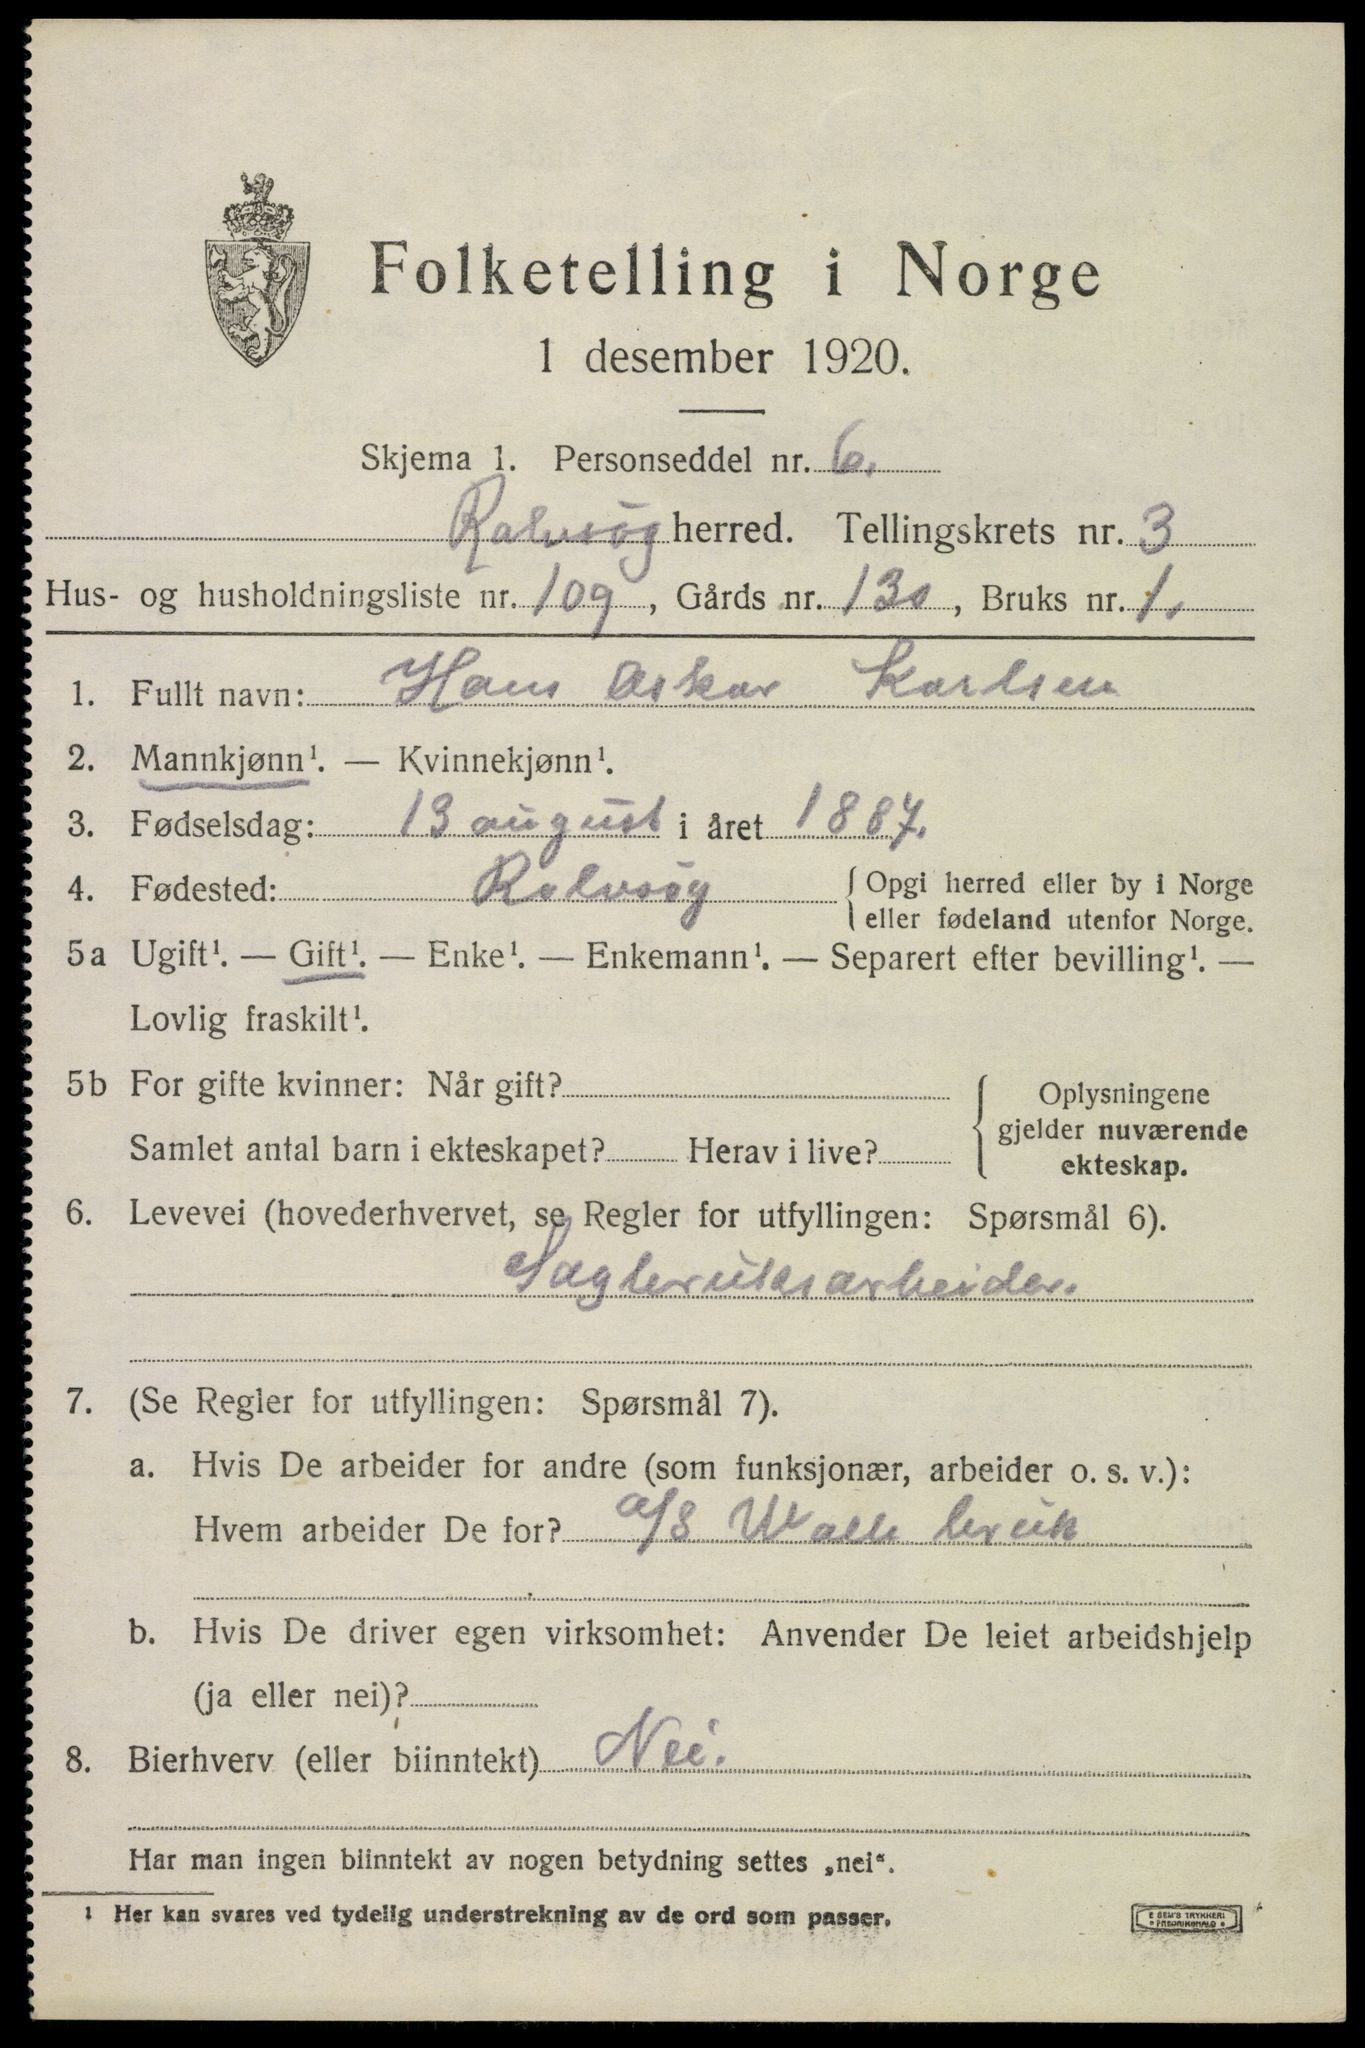 Folketelling i Norge
1 desember 1920.
Skjema 1. Personseddel nr. 6.
Rolvsøy herred. Tellingskrets nr. 3
Hus- og husholdningsliste nr. 109, Gårds nr. 130, Bruks nr. 1.
1. Fullt navn: Hans Oskar Karlsen
2. Mannkjønn¹. — Kvinnekjønn¹.
3. Fødselsdag: 13 august i året 1887.
4. Fødested: Rolvsøy { Opgi herred eller by i Norge
eller fødeland utenfor Norge.
5a Ugift¹. — Gift¹. — Enke¹. — Enkemann¹. — Separert efter bevilling¹. —
Lovlig fraskilt¹.
5b For gifte kvinner: Når gift?
Samlet antal barn i ekteskapet? Herav i live?
Oplysningene
gjelder nuværende
ekteskap.
6. Levevei (hovederhvervet, se Regler for utfyllingen: Spørsmål 6).
Sagbruksarbeider.
7. (Se Regler for utfyllingen: Spørsmål 7).
a. Hvis De arbeider for andre (som funksjonær, arbeider o. s. v.):
Hvem arbeider De for? a/s Valle bruk
b. Hvis De driver egen virksomhet: Anvender De leiet arbeidshjelp
(ja eller nei)?
8. Bierhverv (eller biinntekt) Nei.
Har man ingen biinntekt av nogen betydning settes „nei“.
1 Her kan svares ved tydelig understrekning av de ord som passer.
E SEM'S TRYKKERI
FREDRIKSHALD